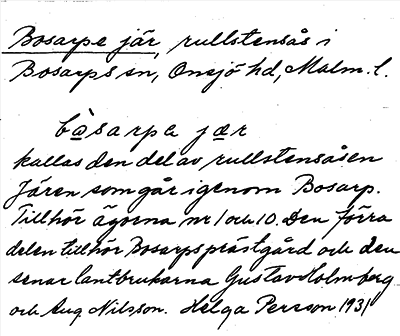 Bosarpe jär, rullstensås i
Bosarps sn, Onsjö hd, Malm. l.
bò̱sarpa jær
kallas den del av rullstensåsen
Jären som går igenom Bosarp.
Tillhör ägorna nr 1 och 10. Den förra
delen tillhör Bosarps prästgård och den
senar lantbrukarna Gustav Holmberg
och Aug Nilsson. Helga Persson 1931